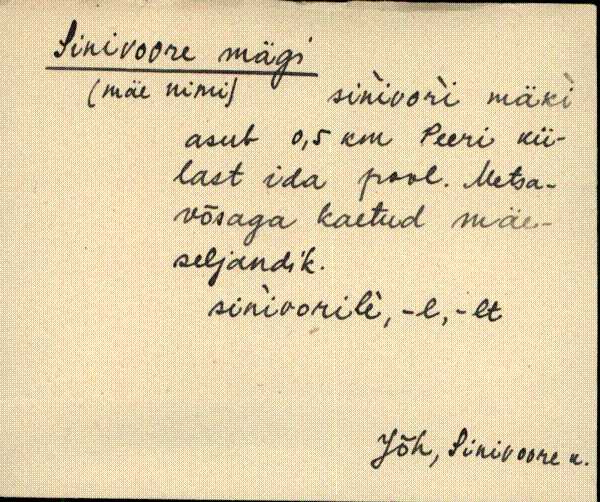 Sinivoore mägi
(mäe nimi) sìnìvorì mäkì
asub 0,5 km Peeri kü-
last ida pool. Metsa-
võsaga kaetud mäe-
seljandik.
sinìvorilè, -l, -lt
Jõh, Sinivoore k.